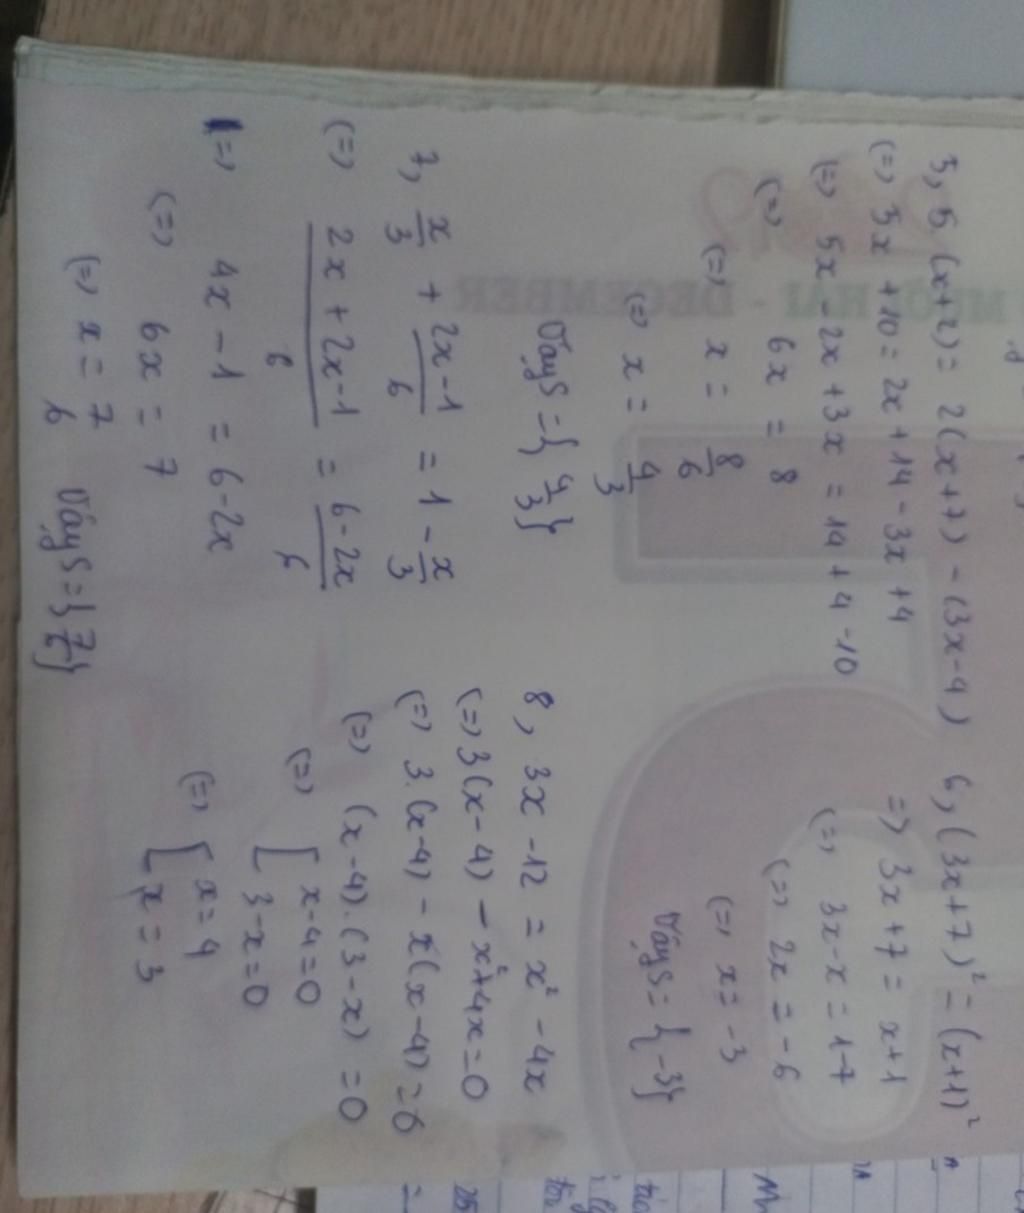 5, 5(x+2) = 2(x+7) - (3x-4)
(=) 5x + 10 = 2x + 14 - 3x + 4
(=) 5x - 2x + 3x = 14 + 4 - 10
(=) 6x = 8
(=) x = 8/6
(=) x = 4/3
Vậy S = { 4/3 }
7, x/3 + 2x-1/6 = 1 - x/3
(=) 2x + 2x-1/6 = 6-2x/6
(=) 4x - 1 = 6-2x
(=) 6x = 7
(=) x = 7/6 Vậy S = { 7/6 }
6, (3x+7)² = (x+1)²
=) 3x+7 = x+1
(=) 3x-x = 1-7
(=) 2x = -6
(=) x = -3
Vậy S = { -3 }
8, 3x - 12 = x² - 4x
(=) 3(x-4) - x² + 4x = 0
(=) 3.(x-4) - x(x-4) = 0
(=) (x-4).(3-x) = 0
(=) [ x-4 = 0
3-x = 0
(=) [ x = 4
x = 3
MƯỜI HAI - DECEMBER